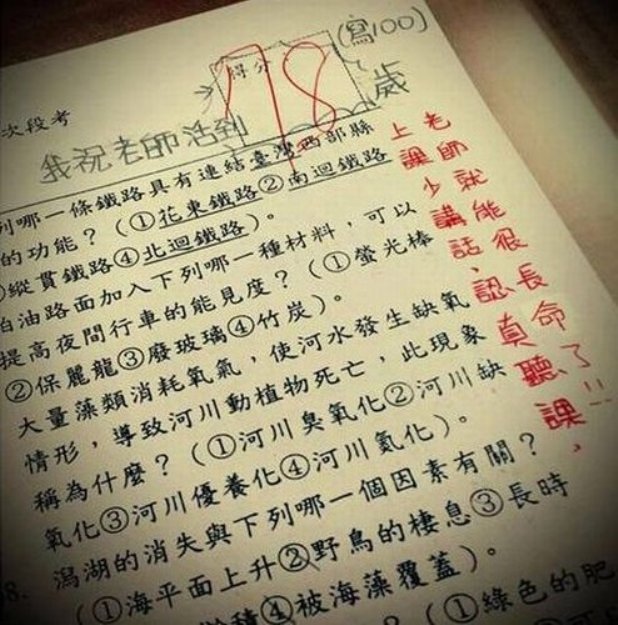 次段考
得分
78
(寫100)
我祝老師活到 歲
上課少講話、認真聽課，
老師就能很長命了!!
列哪一條鐵路具有連結臺灣西部縣
的功能？（①花東鐵路②南迴鐵路
③縱貫鐵路④北迴鐵路）。
柏油路面加入下列哪一種材料，可以
提高夜間行車的能見度？（①螢光棒
②保麗龍③廢玻璃④竹炭）。
大量藻類消耗氧氣，使河水發生缺氧
情形，導致河川動植物死亡，此現象
稱為什麼？（①河川臭氧化②河川缺
氧化③河川優養化④河川氮化）。
8. 潟湖的消失與下列哪一個因素有關？
（①海平面上升②野鳥的棲息③長時
淤積④被海藻覆蓋）。
？（①綠色的肥